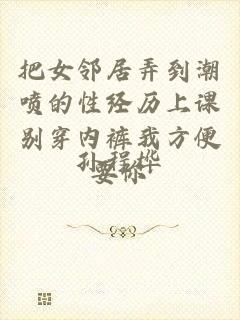 把女邻居弄到潮
喷的性经历上课
别穿内裤我方便
要你
孙程桦